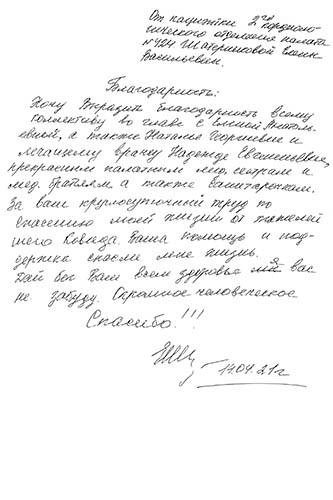 От пациентки 2го кардиоло-
гического отделения палата
№424 Шатериковой Елены
Васильевны.
Благодарность:
Хочу Выразить благодарность всему
коллективу во главе с Еленой Анатоль
евной, а также Наталье Георгиевне и
лечащему врачу Надежде Евгеньевне,
прекрасным палатным мед. сёстрам и
мед. братьям а также санитарочкам.
За ваш круглосуточный труд по
спасению моей жизни от тяжелей
шего Ковида. Ваша помощь и под-
держка спасли мне жизнь.
Дай бог Вам всем здоровья я вас
не забуду. Огромное человеческое
Спасибо!!!
14.04.21г